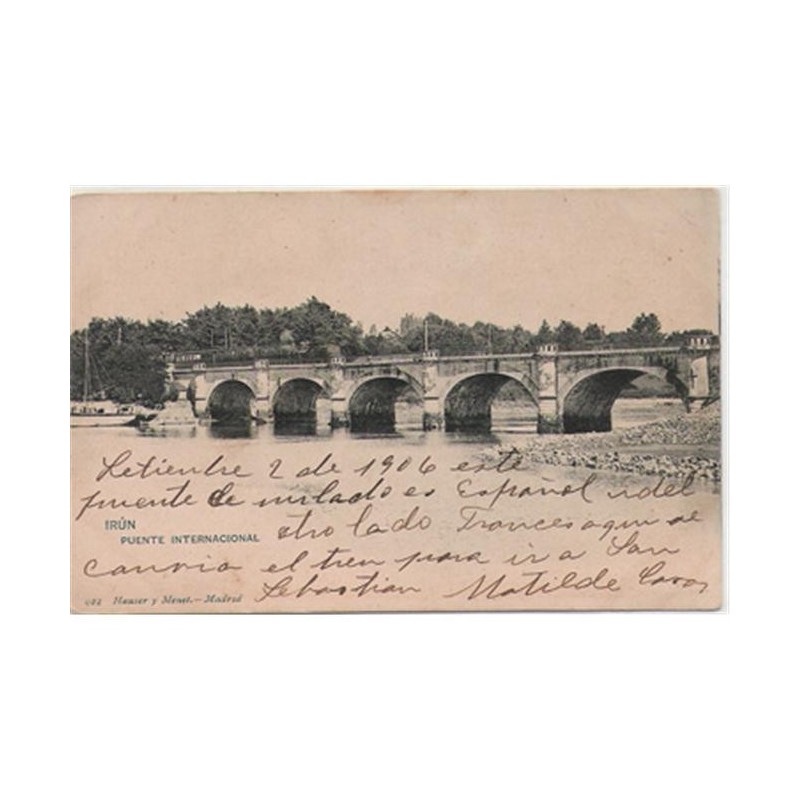 Setienbre 2 de 1906 este
puente de un lado es Español i del
IRÚN
PUENTE INTERNACIONAL
otro lado Frances aqui se
canvia el tren para ir a San
Sebastian Matilde
922 Hauser y Menet.—Madrid